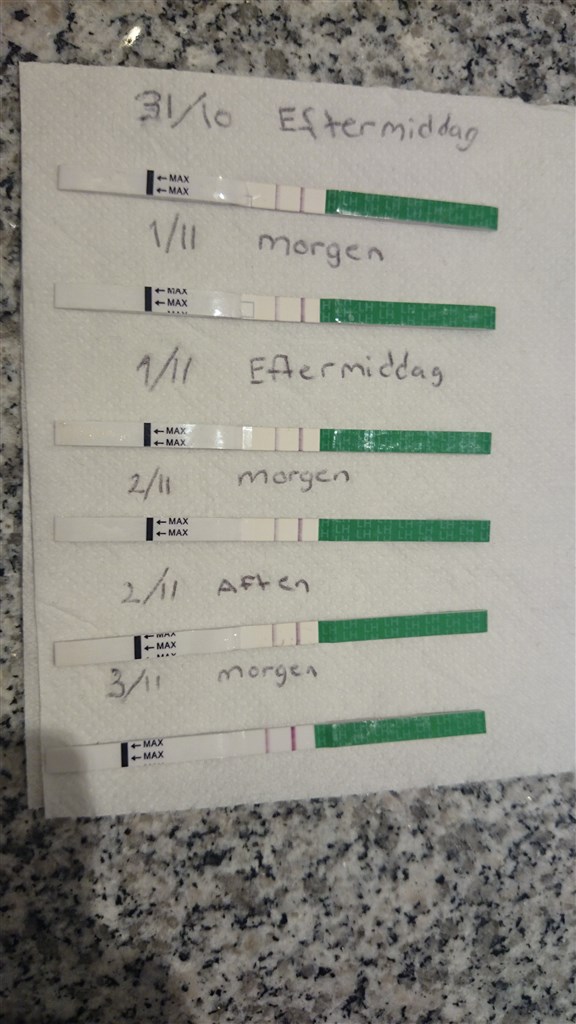 31/10 Eftermiddag
← MAX
← MAX
1/11 morgen
← MAX
← MAX
1/11 Eftermiddag
← MAX
← MAX
2/11 morgen
← MAX
← MAX
2/11 Aften
← MAX
← MAX
3/11 morgen
← MAX
← MAX